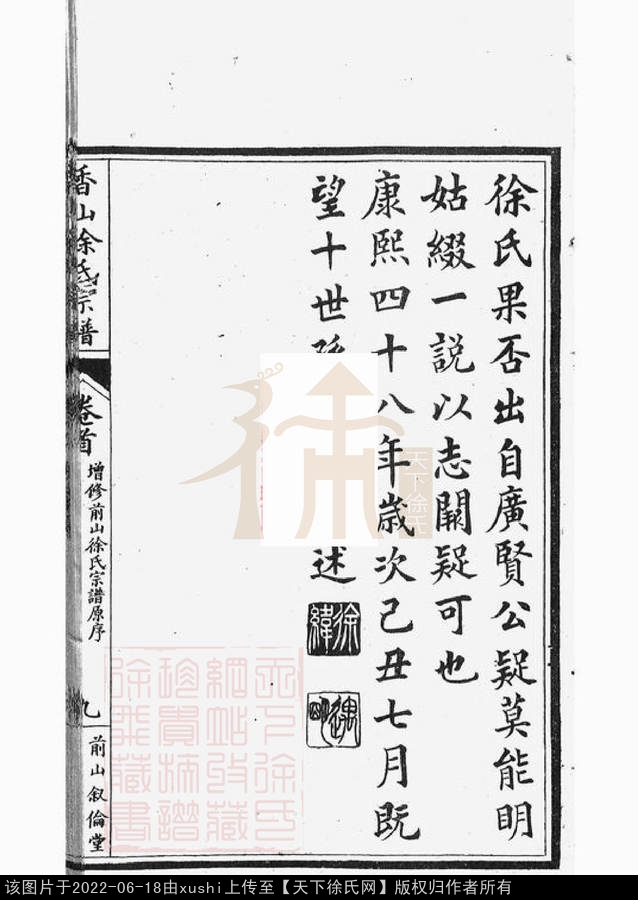 徐氏果否出自廣賢公疑莫能明
姑綴一說以志闕疑可也
康熙四十八年歲次己丑七月既
望十世孫
述
徐緯
遇
香山徐氏宗譜
卷首
增修前山徐氏宗譜原序
九
前山叙倫堂
徐
天下徐氏
天下徐氏
網帖收藏
珍貴
徐
藏書
该图片于2022-06-18由xushi上传至【天下徐氏网】版权归作者所有